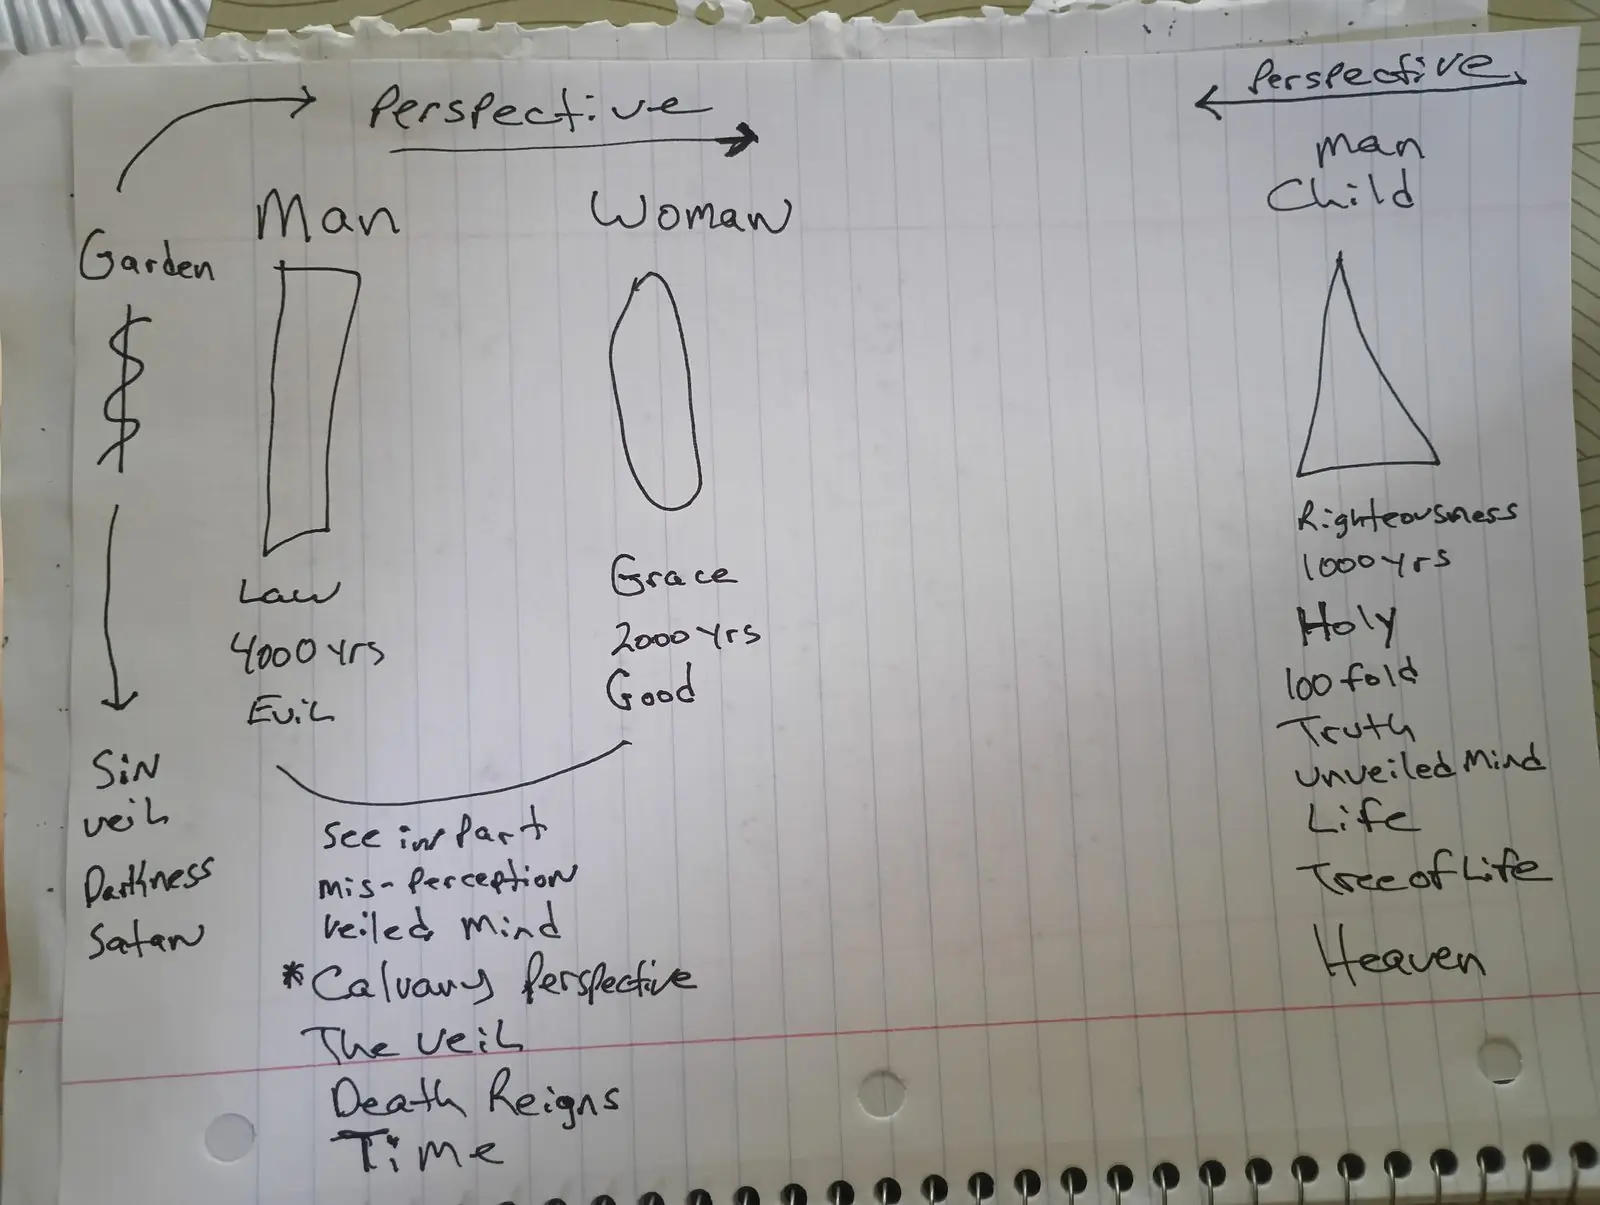 Perspective
Perspective
Man
Woman
man
Child
Garden
Law
4000 yrs
Evil
Grace
2000 yrs
Good
Righteousness
1000 yrs
Holy
100 fold
Truth
unveiled Mind
Life
Tree of Life
Heaven
SiN
veil
Darkness
Satan
See in Part
mis-Perception
veiled Mind
*Calvary Perspective
The veil
Death Reigns
Time